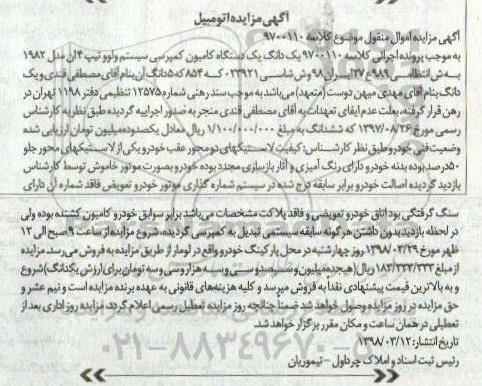 آگهی مزایده اتومبیل
آگهی مزایده اموال منقول موضوع کلاسه ۹۷۰۰۱۱۰
به موجب پرونده اجرائی کلاسه ۹۷۰۰۱۱۰ یک دانگ یک دستگاه کامیون کمپرسی سیستم ولوو تیپ ان مدل ۱۹۸۲
به ش انتظامی ۹۸ وش شاسی ۰۳۳۹۲۱ که ۵دانگ آن بنام آقای مصطفی قندی و یک
دانگ بنام آقای مهدی میهن دوست (متعهد) می‌باشد به موجب سند رهنی شماره ۱۲۵۷۵ تنظیمی دفتر ۱۱۹۸ تهران در
رهن قرار گرفته، بعلت عدم ایفای تعهدات به آقای مصطفی قندی منجر به صدور اجراییه گردیده طبق نظریه کارشناس
رسمی مورخ ۱۳۹۷/۰۸/۲۶ که ششدانگ به مبلغ ۱/۱۰۰/۰۰۰/۰۰۰ ریال معادل یکصدوده میلیون تومان ارزیابی شده
وضعیت فنی خودرو طبق نظر کارشناس: کیفیت لاستیکهای دو محور عقب خودرو یکی از لاستیکهای محور جلو
۵۰درصد بوده بدنه خودرو دارای رنگ آمیزی و آثار بازسازی مجدد بوده خودرو بصورت موتور خاموش توسط کارشناس
بازدید گردیده اصالت خودرو برابر سابقه درج شده در سیستم شماره گذاری موتور خودرو تعویض فاقد شماره آن دارای
سنگ گرفتگی بود اتاق خودرو تعویضی و فاقد پلاکت مشخصات می‌باشد برابر سوابق خودرو کامیون کشنده بوده ولی
در لحظه بازدید بدون داشتن هرگونه سابقه سیستمی تبدیل به کمپرسی گردیده، شروع مزایده از ساعت ۹ صبح الی ۱۲
ظهر مورخ ۱۳۹۸/۰۳/۲۹ روز چهارشنبه در محل پارکینگ خودرو واقع در لومار از طریق مزایده به فروش می‌رسد مزایده
از مبلغ ۱۸۳/۳۳۳/۳۳۳ ریال (هیجده میلیون و سیصد و سی و سه هزار و سی و سه تومان برای ارزش یکدانگ) شروع
و به بالاترین قیمت پیشنهادی نقدا به فروش میرسد و کلیه هزینه‌های قانونی به عهده برنده مزایده است و نیم عشر و
حق مزایده در روز مزایده وصول خواهد شد ضمنا چنانچه روز مزایده تعطیل رسمی اعلام گردد، مزایده روز اداری بعد از
تعطیلی در همان ساعت و مکان مقرر برگزار خواهد شد.
تاریخ انتشار: ۱۳۹۸/۰۳/۱۲
رئیس ثبت اسناد و املاک چرداول - تیموریان
۰۲۱-۸۸۳۴۹۶۷۰